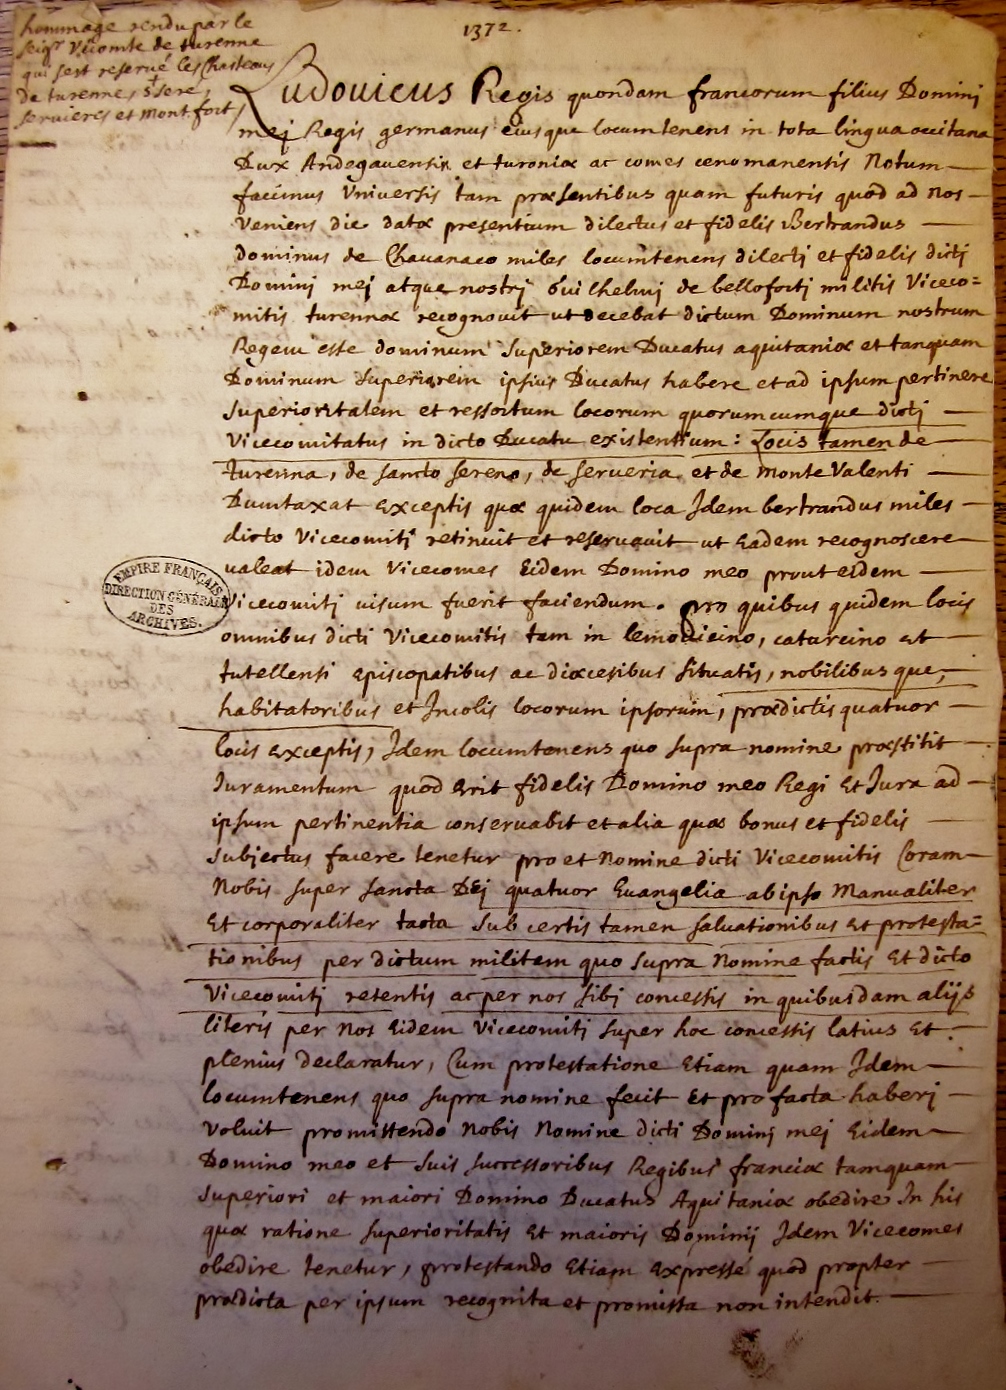 1372.
hommage rendu par le
seigr Vicomte de turenne
qui sest reservé les Chasteaux
de turenne, St sere,
servieres et Montfort
Ludovicus Regis quondam francorum filius Dominj
mej Regis germanus eiusque locumtenens in tota lingua occitana
Dux Andegavensis et turoniæ ac comes cenomanensis Notum
facimus Vniversis tam præsentibus quam futuris quod ad nos
veniens die datæ presentium dilectus et fidelis Bertrandus
dominus de Chavanaco miles locumtenens dilectj et fidelis dictj
Dominj mej atque nostrj Guilhelmj de belloforti militis Viceco=
mitis turennæ recognovit ut decebat dictum Dominum nostrum
Regem esse dominum superiorem Ducatus aquitaniæ et tanquam
Dominum superiorem ipsius Ducatus habere et ad ipsum pertinere
superioritatem et ressortum locorum quorumcumque dictj
Vicecomitatus in dicto Ducatu existentium: Locis tamen de
turenna, de sancto sereno, de serveria et de monte Valenti
Dumtaxat exceptis quæ quidem loca Idem bertrandus miles
dicto Vicecomitj retinuit et reservavit ut eadem recognoscere
valeat idem Vicecomes Eidem Domino meo prout eidem
Vicecomitj visum fuerit faciendum. pro quibus quidem locis
omnibus dicti Vicecomitis tam in lemovicino, caturcino et
tutellensi episcopatibus ac diœcesibus situatis, nobilibus que,
habitatoribus et Incolis locorum ipsorum, prædictis quatuor
locis exceptis, Idem locumtenens quo supra nomine præstitit
Iuramentum quod erit fidelis Domino meo Regi et Iura ad
ipsum pertinentia conservabit et alia quæ bonus et fidelis
subjectus facere tenetur pro et nomine dicti Vicecomitis Coram
Nobis super sancta Dej quatuor Evangelia ab ipso Manualiter
Et corporaliter tacta sub certis tamen salvationibus et protesta=
tionibus per dictum militem quo supra Nomine factis Et dicto
Vicecomitj retentis ac per nos sibj concessis in quibusdam alijs
literis per nos Eidem Vicecomitj super hoc concessis latius et
plenius declaratur, Cum protestatione Etiam quam Idem
locumtenens quo supra nomine fecit et pro facta haberj
voluit promittendo nobis Nomine dicti Dominj mej Eidem
Domino meo et suis successoribus Regibus franciæ tamquam
superiori et maiori Domino Ducatus Aquitaniæ obedire In his
quæ ratione superioritatis et maioris Dominij Idem Vicecomes
obedire tenetur, protestando Etiam expressé quod propter
prædicta per ipsum recognita et promissa non intendit.
EMPIRE FRANÇAIS
DIRECTION GÉNÉRALE
DES
ARCHIVES.